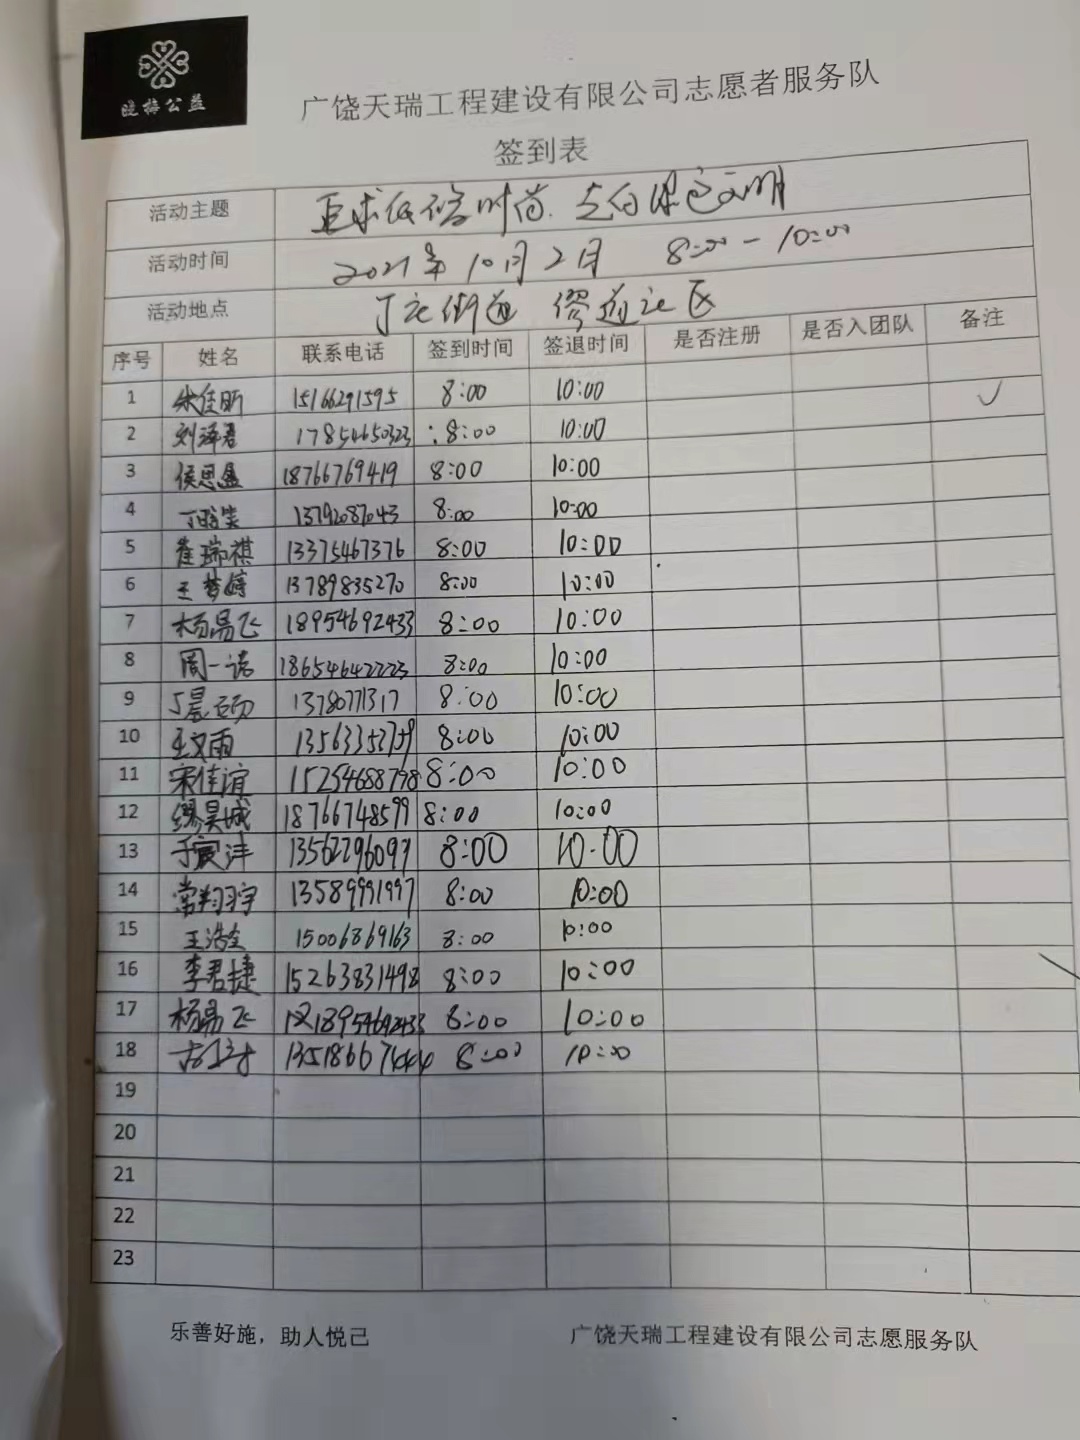 晓梅公益
广饶天瑞工程建设有限公司志愿者服务队
签到表
活动主题 追求低碳时尚. 走向绿色文明
活动时间 2021年10月2日 8:00-10:00
活动地点 丁庄街道 缪道社区
序号 姓名 联系电话 签到时间 签退时间 是否注册 是否入团队 备注
1 宋佳昕 15166291595 8:00 10:00 ✓
2 刘泽君 17854650323 :8:00 10:00
3 侯思盈 18766769419 8:00 10:00
4 13792087043 8:00 10:00
5 崔瑞祺 13375467376 8:00 10:00
6 王梦婷 13789835270 8:00 10:00
7 杨易飞 18954692433 8:00 10:00
8 周一诺 18654642223 8:00 10:00
9 13780771317 8:00 10:00
10 王文雨 8:00 10:00
11 宋佳谊 15254688798 8:00 10:00
12 缪昊城 18766748599 8:00 10:00
13 于寅沣 13562296099 8:00 10:00
14 常翔宇 13589991997 8:00 10:00
15 王浩全 15006869163 8:00 10:00
16 李君捷 15263831498 8:00 10:00
17 杨易飞 18954692433 8:00 10:00
18 8:00 10:00
19
20
21
22
23
乐善好施，助人悦己 广饶天瑞工程建设有限公司志愿服务队